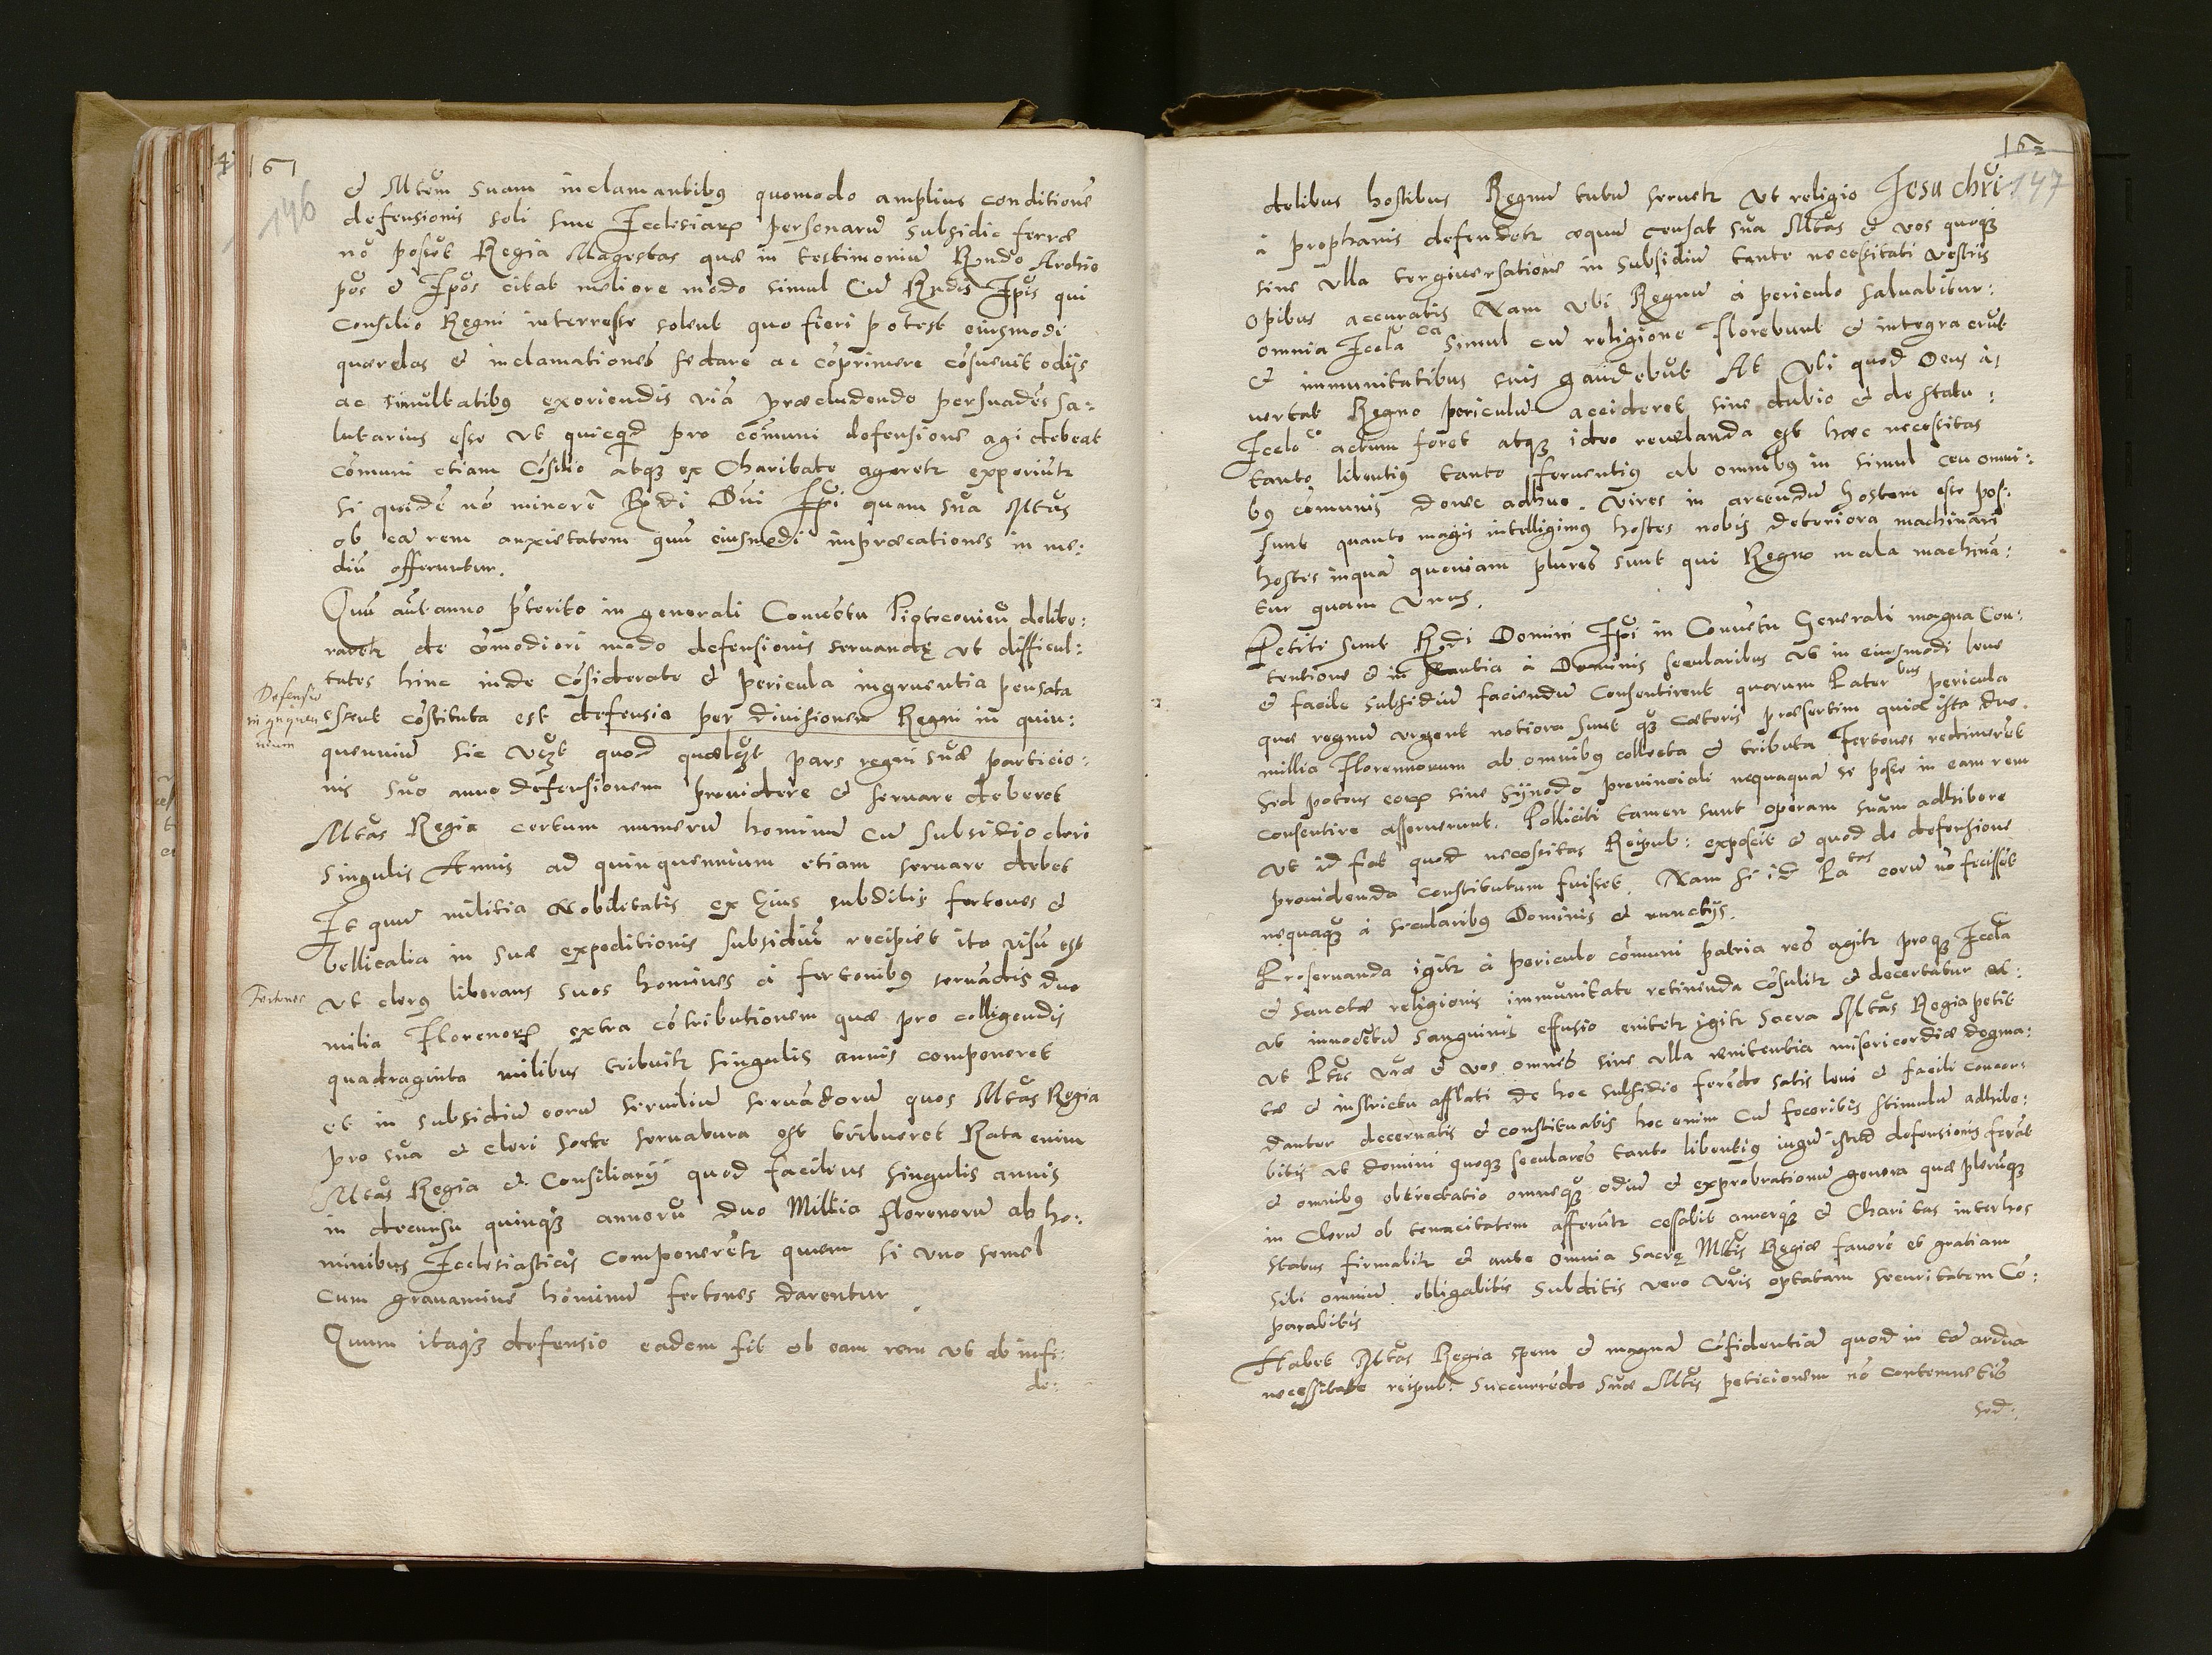 161
146
& Mtem suam inclamantibus quomodo amplius conditione
defensionis soli sine Ecclesiar personaru subsidio ferræ
no posset Regia Magestas quæ in testimoniu Rndo Archie
pos & Epos citat meliore modo simul Cu Rndis Epis qui
Consilio Regni interresse solent quo fieri potest eiusmodi
querelas & inclamationes sedare ac coprimere cosuevit odijs
ac simultatibus exoriendis via præcludendo persuades sa:
lutarius esse ut quicqd pro comuni defensione agi debeat
comuni etiam Cosilio atq ex Charitate ageretr experiutr
si quide no minore Rndi Dni Epi quam sua Mtas
ob ea rem anxietatem quu eiusmodi impræcationes in me:
diu offeruntur.
Quu aut anno pterito in generali Conventu Piotrcovieu delibe:
raretr de comodiori modo defensionis servandę ut difficul:
tates hinc inde Cosiderate & pericula ingruentia pensata
Defensio
in quinquen
nium
essent costituta est defensio per divisionem Regni in quin:
quenniu sic vczt quod quælzt pars regni suæ particio:
nis suo anno defensionem providere & servare deberet
Mtas Regia certum numeru hominu cu subsidio cleri
singulis Annis ad quinquennium etiam servare debet
Et quu militia Nobilitatis ex Eius subditis fertones &
bellicalia in suæ expeditionis subsidiu recipiet ita visu est
Fertones
ut clerus liberans suos homines à fertonibus servadis duo
milia Florenor extra cotributionem quæ pro colligendis
quadraginta milibus tribuitr singulis annis componeret
et in subsidiu eoru servilium servadoru quos Mtas Regia
pro sua & Cleri sorte servatura est tribueret Rata enim
Mtas Regia & Consiliarij quod facilius singulis annis
in decursu quinq annoru duo Millia florenoru ab ho:
minibus Ecclesiasticis componeretr quam si uno semel
cum gravamine hominu fertones darentur
Quum itaq defensio eadem fit ob eam rem ut ab infi:
de:
162
147
delibus hostibus Regnu tutu servetr ut religio Jesu chri
à prophanis defendetr æquu censat sua Mtas & vos quoq
sine ulla tergiversatione in subsidiu tante necessitati vestris
opibus accuratis Nam ubi Regnu à periculo salvabitur:
omnia Eccla ca simul cu religione florebunt & integra erut
& immunitatibus suis gaudebut At Ubi quod Deus a:
vertat Regno periculu accideret sine dubio & de statu:
Ecclo co actum foret atq ideo revelanda est hæc necessitas
tanto libentius tanto ferventius ab omnibus in simul ceu omni:
bus comunis donec adhuc. Vires in arcendu hostem esse pos:
sunt quanto magis intelligimus hostes nobis deteriora machinari
hostes inqua quoniam plures sunt qui Regno mala machina:
tur quam unus.
Petiti sunt Rndi Domini Epi in Conuetu Generali magna Con:
tentione & in à Dominis secularibus ut in eiusmodi leve
& facile subsidiu faciendu Consentirent quorum Pater bus pericula
quæ regnu urgent notiora sunt q cæteris præsertim quia ista duo
millia Florennorum ab omnibus collecta & tributa Fertones redimeret
Sed potens eor sine Synodo provinciali nequaqua se posse in eam rem
consentire asseruerunt. Polliciti tamen sunt operam suam adhibere
ut id fiat quod necessitas Reipub: exposcit & quod de defensione
providenda constitutum fuisset. Nam si id Pa tas eoru no fecisset
nequaq à secularibus Dominis & nunctijs.
Preservanda igitr à periculo comuni patria res agitr proq Eccla
& Sanctæ religionis immunitate retinenda cosulitr & decertatur et:
ut innocetu sanguinis effusio evitetr igitr Sacra Mtas Regia petit
ut Ptes vræ & vos omnes sine ulla renitentia misericordiæ dogma:
tæ & instrictu afflati de hoc subsidio feredo satis levi & facili concor:
danter decernatis & constituatis hoc enim cu feceritis stimulu adhibe:
bitis ut domini quoq seculares tanto libentius iugu istud defensionis ferat
& omnibus obtrectatio omneq odiu & exprobrationu genera quæ pleruq
in Cleru ob tenacitatem afferutr cessabit amorq & Charitas inter hos
Status firmabitr & ante omnia Sacrę Mtis Regiæ favore et gratiam
sibi omniu obligabitis Subditis vero vris optatam securitatem Co:
parabitis
Habet Mtas Regia spem & magna cofidentia quod in ta ardua
necessitate reipub: succurredo suæ Mtis peticionem no contemnetis
sed: